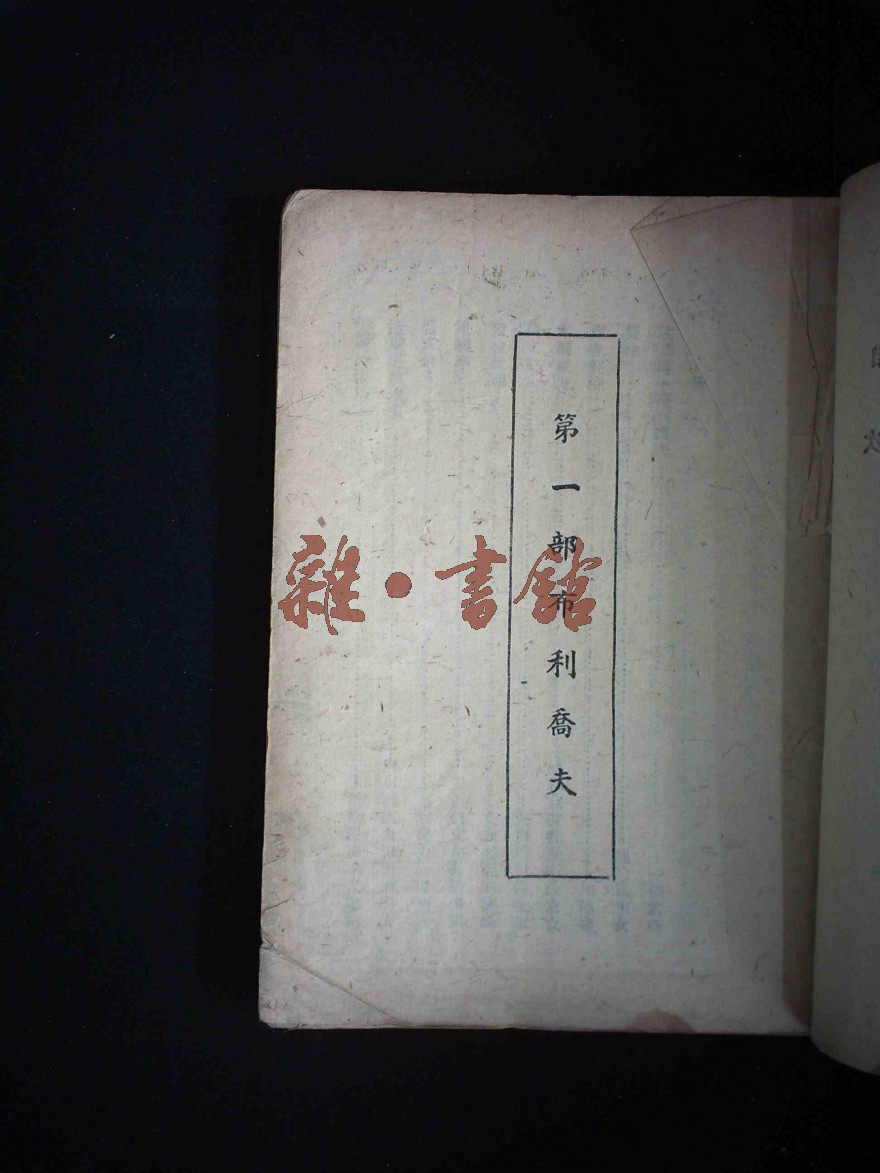 第一部布利喬夫
雜·書館